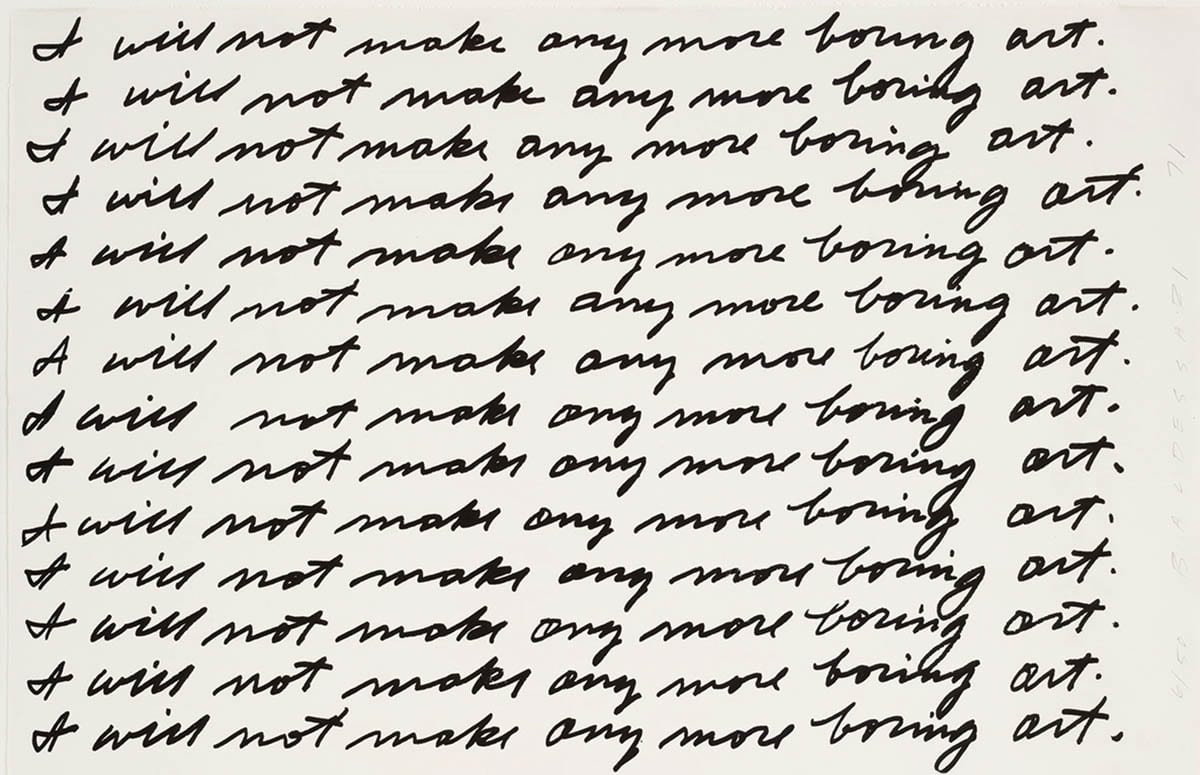 I will not make any more boring art.
I will not make any more boring art.
I will not make any more boring art.
I will not make any more boring art.
I will not make any more boring art.
I will not make any more boring art.
I will not make any more boring art.
I will not make any more boring art.
I will not make any more boring art.
I will not make any more boring art.
I will not make any more boring art.
I will not make any more boring art.
I will not make any more boring art.
I will not make any more boring art.
BALDESSARI 71